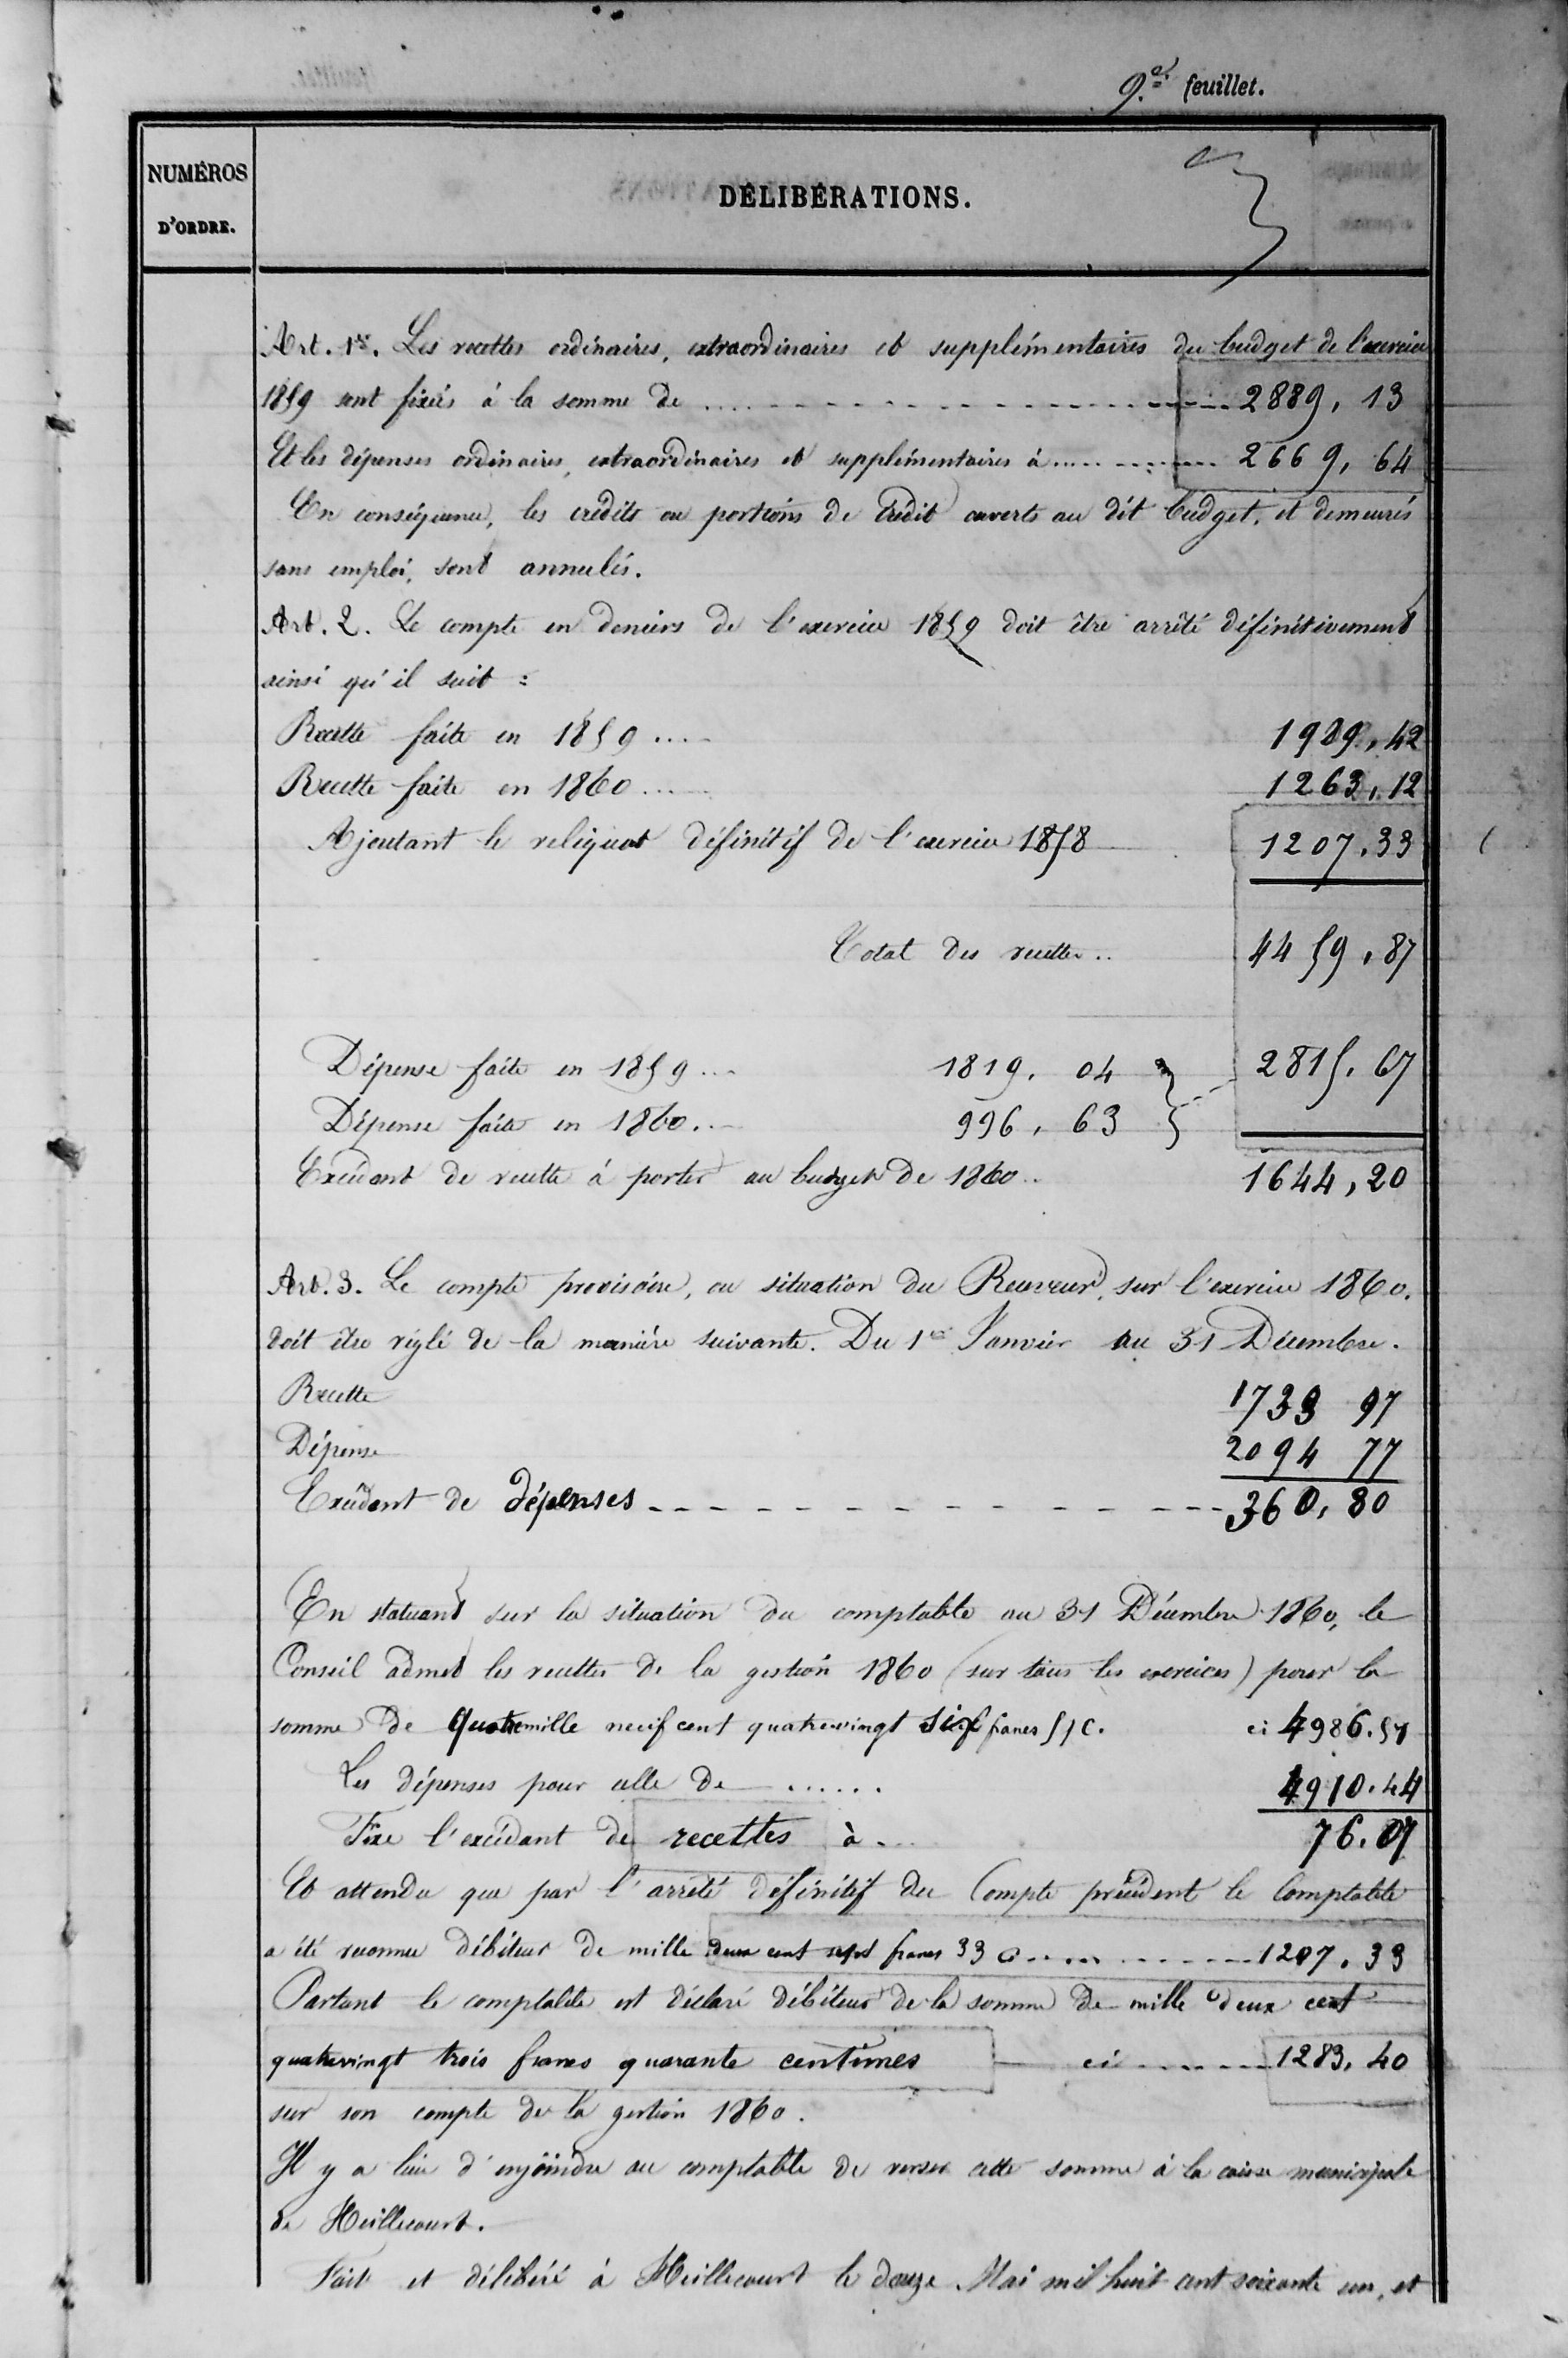 9.e feuillet.
NUMÉROS
D'ORDRE.
DÉLIBÉRATIONS.
Art. 1er. Les recettes ordinaires, extraordinaires et supplémentaires du budget de l'exercice
1859 sont fixées à la somme de .... 2889, 13
Et les dépenses ordinaires, extraordinaires et supplémentaires à .... 2669, 64
En conséquence, les crédits ou portions de crédit ouverts au dit budget, et demeurés
sans emploi, sont annulés.
Art. 2. Le compte en deniers de l'exercice 1859 doit être arrêté définitivement
ainsi qu'il suit :
Recette faite en 1859 .... 1989, 42
Recette faite en 1860 .... 1263, 12
Ajoutant le reliquat définitif de l'exercice 1858 1207. 33
Total des recettes .. 4459, 87
Dépense faite en 1859 ... 1819. 04 } 2815. 67
Dépense faite en 1860 .. 996, 63 }
Excédant de recette à porter au budget de 1860 .. 1644, 20
Art. 3. Le compte provisoire, ou situation du Receveur, sur l'exercice 1860.
doit être réglé de la manière suivante. Du 1er Janvier au 31 Décembre.
Recette 1733 97
Dépense 2094 77
Excédant de dépenses - - - - 360, 80
En statuant sur la situation du comptable au 31 Décembre 1860, le
Conseil admet les recettes de la gestion 1860 (sur tous les exercices) pour la
somme de quatremille neuf cent quatrevingt six francs 51c. ci 4986.51
Les dépenses pour celle de ...... 4910.44
Fixe l'excédant de recettes à ... 76.07
Et attendu que par l'arrêté définitif du Compte précédent le Comptable
a été reconnu débiteur de mille deux cent sept francs 33 c .... 1207. 33
Partant le comptable est déclaré débiteur de la somme de mille deux cent
quatrevingt trois francs quarante centimes ci .... 1283, 40
sur son compte de la gestion 1860.
Il y a lieu d'enjoindre au comptable de verser cette somme à la caisse municipale
de Heillecourt.
Fait et délibéré à Heillecourt le douze Mai mil huit cent soixante un, et